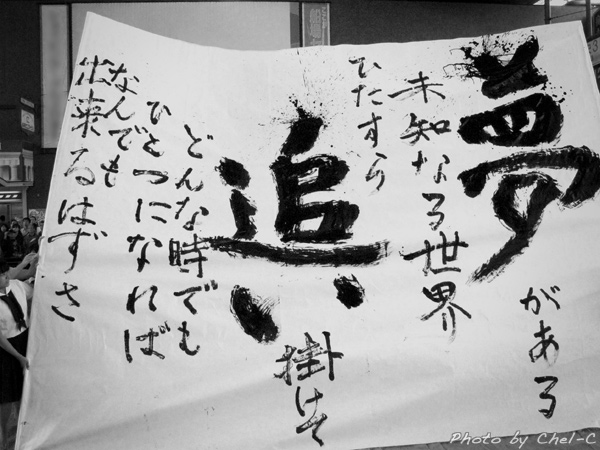 夢がある
未知なる世界
ひたすら
追い掛けて
どんな時でも
ひとつになれば
なんでも
出来るはずさ
Photo by Chel-C